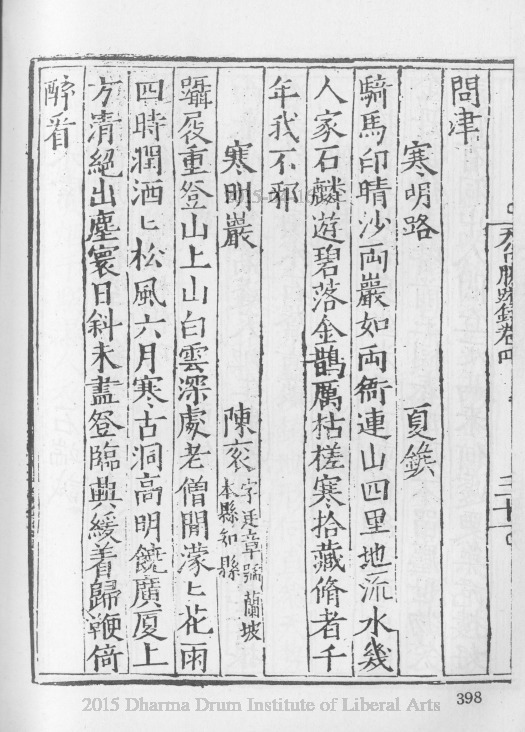 天台勝蹟錄卷四 三十
問津
寒明路 夏鍭
騎馬印晴沙両巖如両衙連山四里地流水幾
人家石麟遊碧落金鵲厲枯槎寒拾藏脩者千
年我不邪
寒明巖 陳袞 字廷章號蘭坡
本縣知縣
躡屐重登山上山白雲深處老僧閒濛匕花雨
四時潤洒匕松風六月寒古洞高明饒廣厦上
方清絕出塵寰日斜未盡登臨興緩着歸鞭倚
醉看
398
2015 Dharma Drum Institute of Liberal Arts